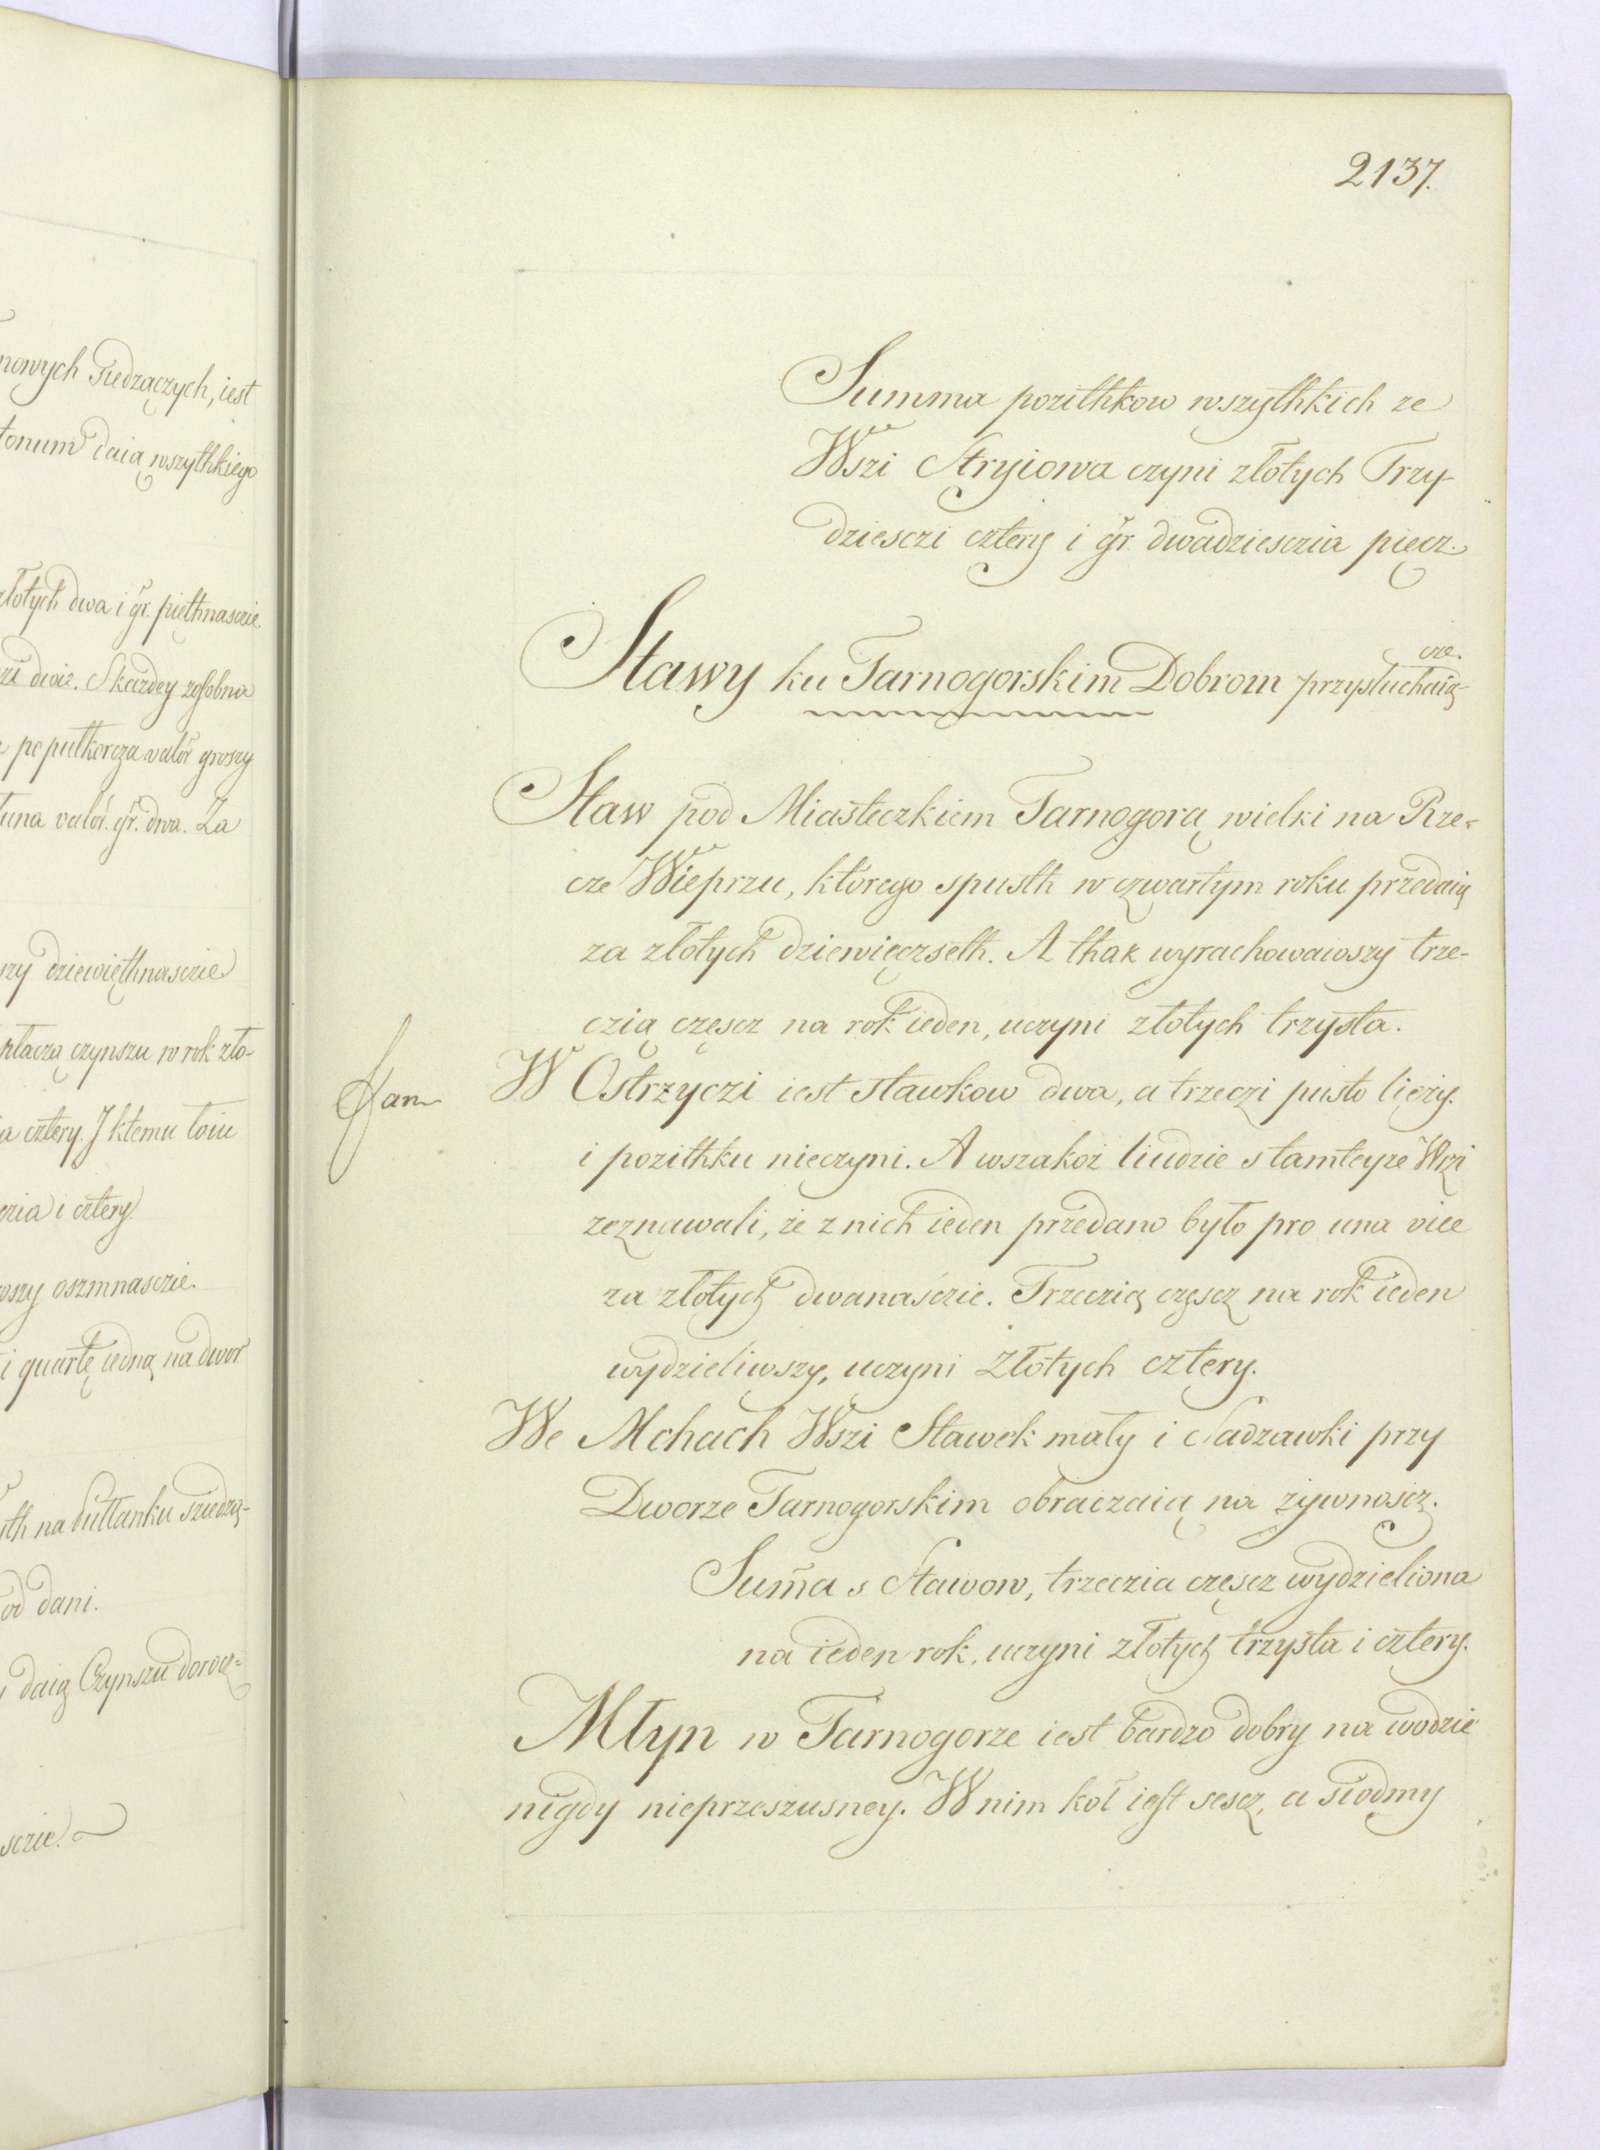 nowych siedzączych, iest
tonum daią wszythkiego
złotych dwa i gr. pięthnasczie.
dwie. Skażdey zosobna
po pułkorcza valor groszy
valor. gr. dwa. Za
dziewięthnasczie
płaczą czynszu w rok zło-
cztery. J kłemu
i cztery
oszmnasczie.
i quartę iedną na dwor
na
od dani.
daią Czynszu
sczie.
2137.
Summa pozithkow wszythkich ze
Wszi Stryiowa czyni złotych Trzy-
dziesczi cztery i gr. dwadziesczia pięcz.
Stawy ku Tarnogorskim Dobrom przysłuchaią-
cze.
Staw pod Miasteczkiem Tarnogorą wielki na Rze-
cze Wieprzu, którego spusth w czwartym roku przedaią
za złotych dziewięczseth. A thak wyrachowawszy trze-
czią częscz na rok ieden, uczyni złotych trzysta.
fam
W Ostrzyczi iest stawkow dwa, a trzeczi pusto lieży.
i pozithku nieczyni. A wszakoż liudzie s tamteyże Wszi
zeznawali, że z nich ieden przedano było pro una vice
za złotych dwanasczie. Trzeczią częscz na rok ieden
wydzieliwszy, uczyni złotych cztery.
We Mchach Wszi Stawek mały i Sadzawki przy
Dworze Tarnogorskim obraczaią na żywnoscz.
Sum̃a s Stawow, trzeczia częscz wydzieliona
na ieden rok, uczyni złotych trzysta i cztery.
Młyn w Tarnogorze iest bardzo dobry na wodzie
nigdy nieprzeszusney. W nim koł iest sescz, a siodmy